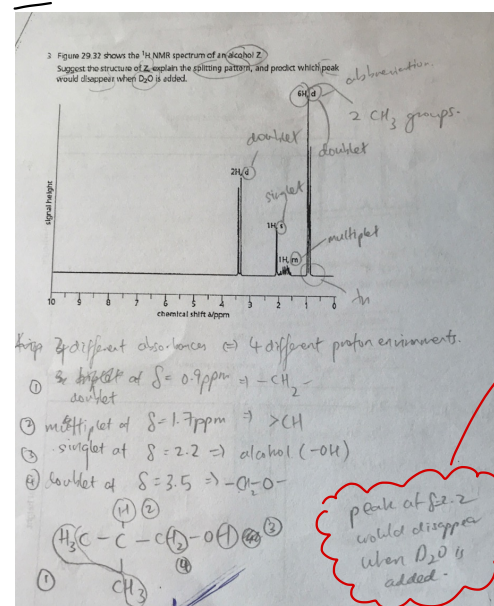 3 Figure 29.32 shows the ¹H NMR spectrum of an alcohol Z.
Suggest the structure of Z, explain the splitting pattern, and predict which peak
would disappear when D₂O is added.
abbreviation.
6H, d
2 CH₃ groups.
doublet
doublet
2H, d
singlet
1H, s
multiplet
1H, m
signal height
10 9 8 7 6 5 4 3 2 1 0
chemical shift δ/ppm
different absorbances => 4 different proton environments.
① doublet at δ = 0.9ppm => -CH₂-
② multiplet at δ = 1.7ppm => >CH
③ singlet at δ = 2.2 => alcohol (-OH)
④ doublet at δ = 3.5 => -CH₂-O-
H ②
H₃C - C - CH₂ - OH ③
④
① CH₃
peak at δ=2.2
would disappear
when D₂O is
added.